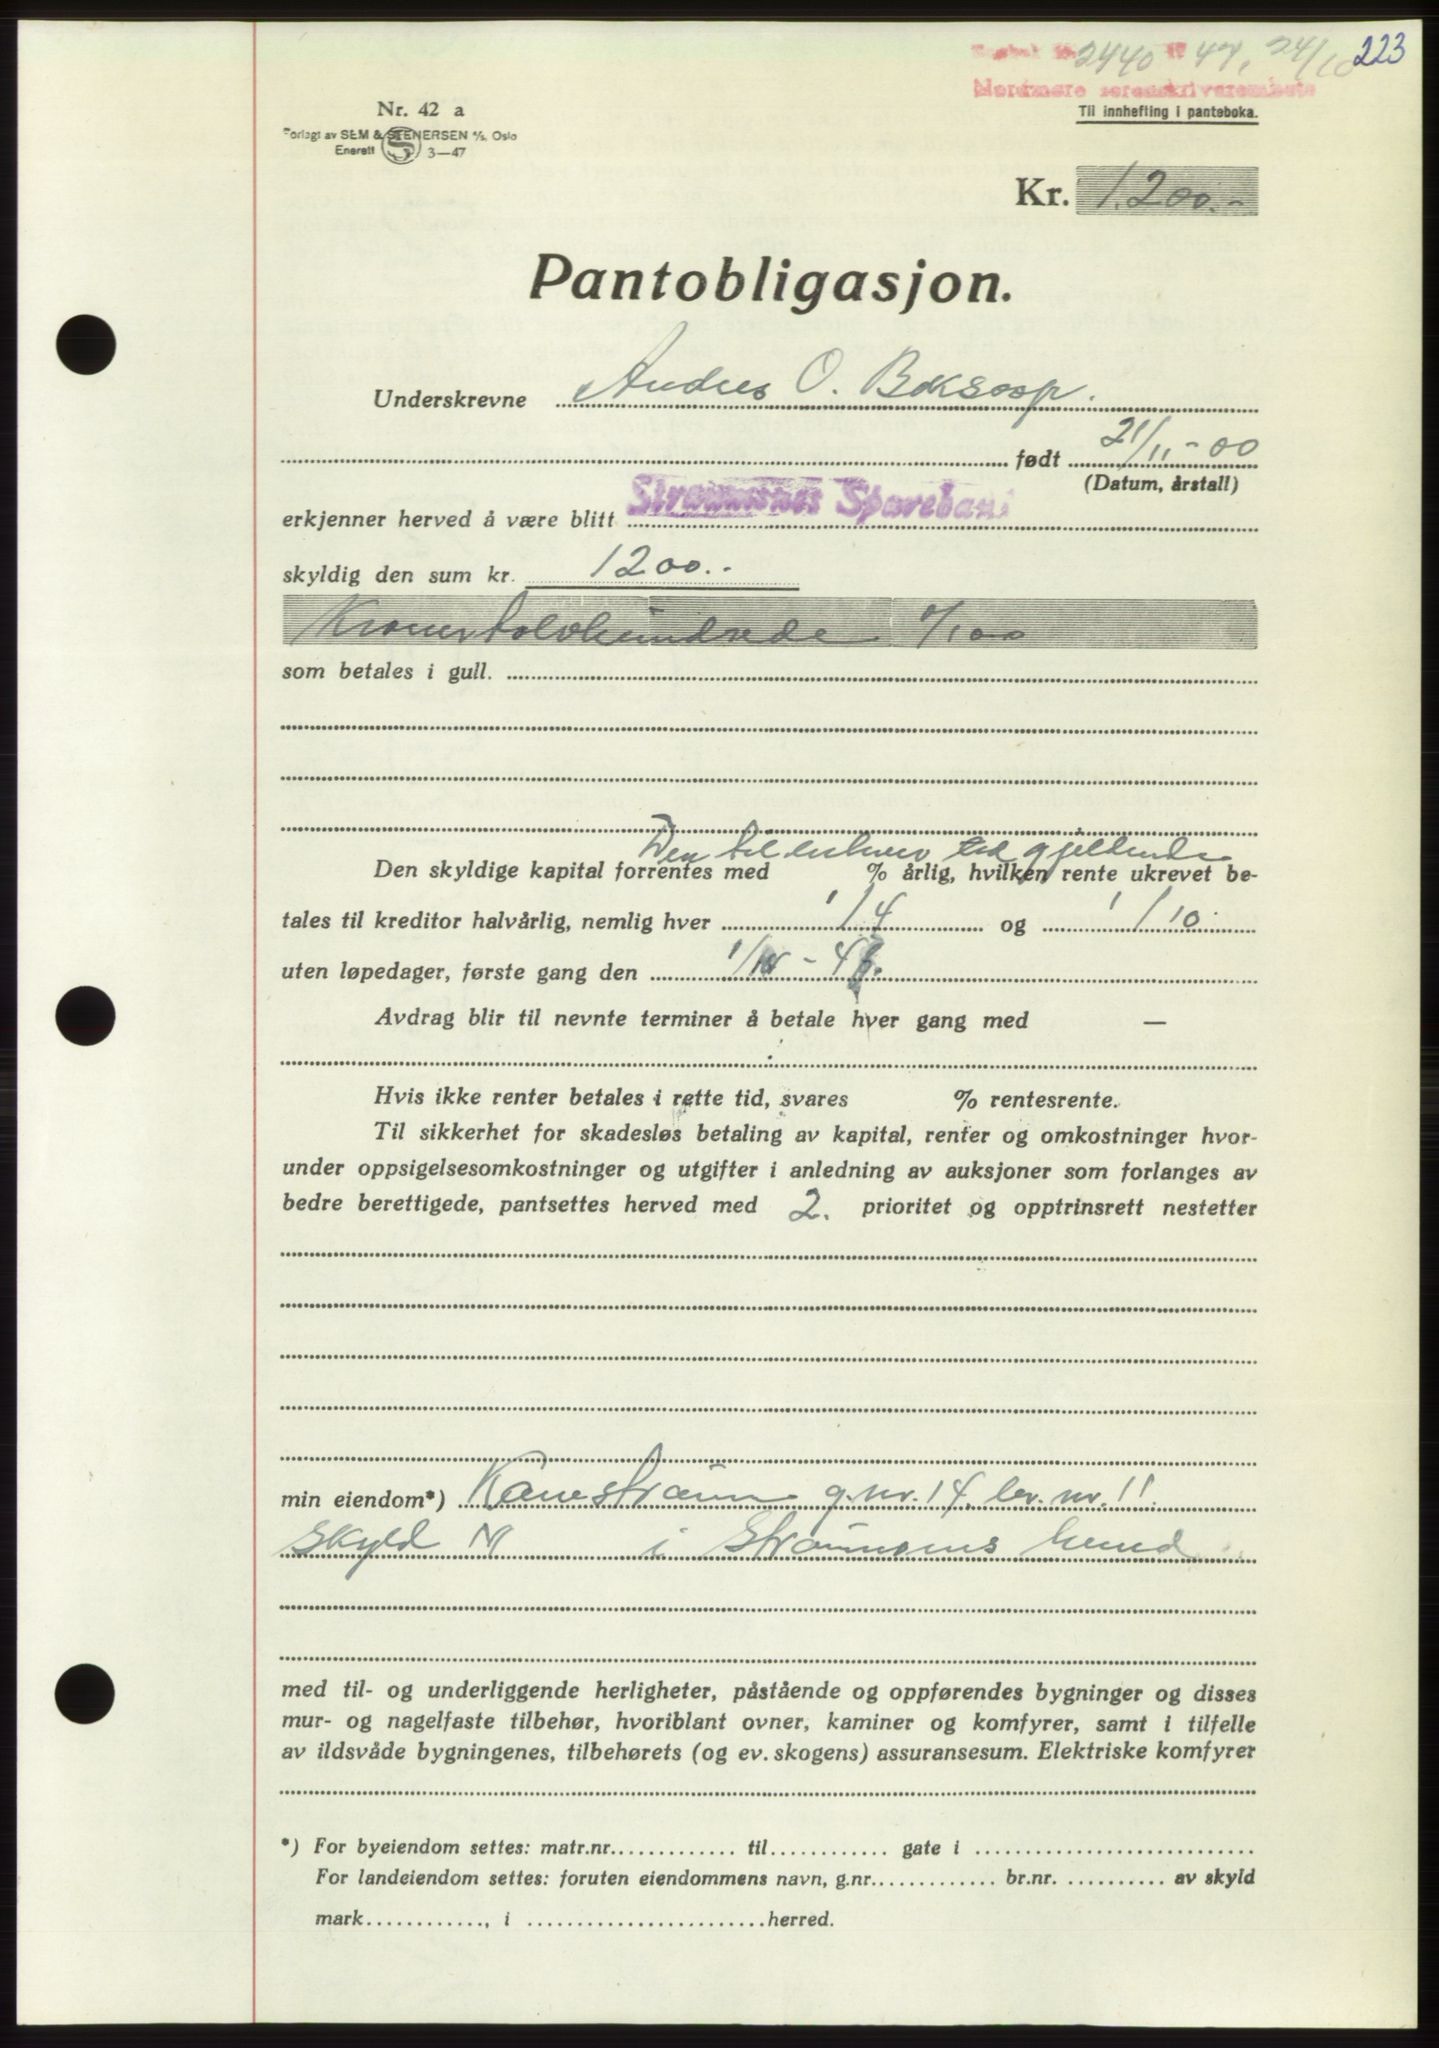 223
2440 47, 24/10
Nordmøre sorenskriverembete
Nr. 42 a
Til innhefting i panteboka.
Forlagt av SEM & STENERSEN A/S, Oslo
Enerett S 3—47
Kr. 1.200.-
Pantobligasjon.
Underskrevne Andres O. Boksasp.
født 21/11-00
(Datum, årstall)
erkjenner herved å være blitt Straumsnes Sparebank
skyldig den sum kr. 1200.-
Kroner tolvhundrede 0/100
som betales i gull.
Den til enhver tid gjeldende
Den skyldige kapital forrentes med % årlig, hvilken rente ukrevet be-
tales til kreditor halvårlig, nemlig hver 1/4 og 1/10
uten løpedager, første gang den
Avdrag blir til nevnte terminer å betale hver gang med —
Hvis ikke renter betales i rette tid, svares % rentesrente.
Til sikkerhet for skadesløs betaling av kapital, renter og omkostninger hvor-
under oppsigelsesomkostninger og utgifter i anledning av auksjoner som forlanges av
bedre berettigede, pantsettes herved med 2. prioritet og opptrinsrett nestetter
min eiendom*) Kanestraum g.nr. 14, br.nr. 11.
Skyld M i Straumsnes herred
med til- og underliggende herligheter, påstående og oppførendes bygninger og disses
mur- og nagelfaste tilbehør, hvoriblant ovner, kaminer og komfyrer, samt i tilfelle
av ildsvåde bygningenes, tilbehørets (og ev. skogens) assuransesum. Elektriske komfyrer
*) For byeiendom settes: matr.nr. til gate i
For landeiendom settes: foruten eiendommens navn, g.nr. br.nr. av skyld
mark , i herred.